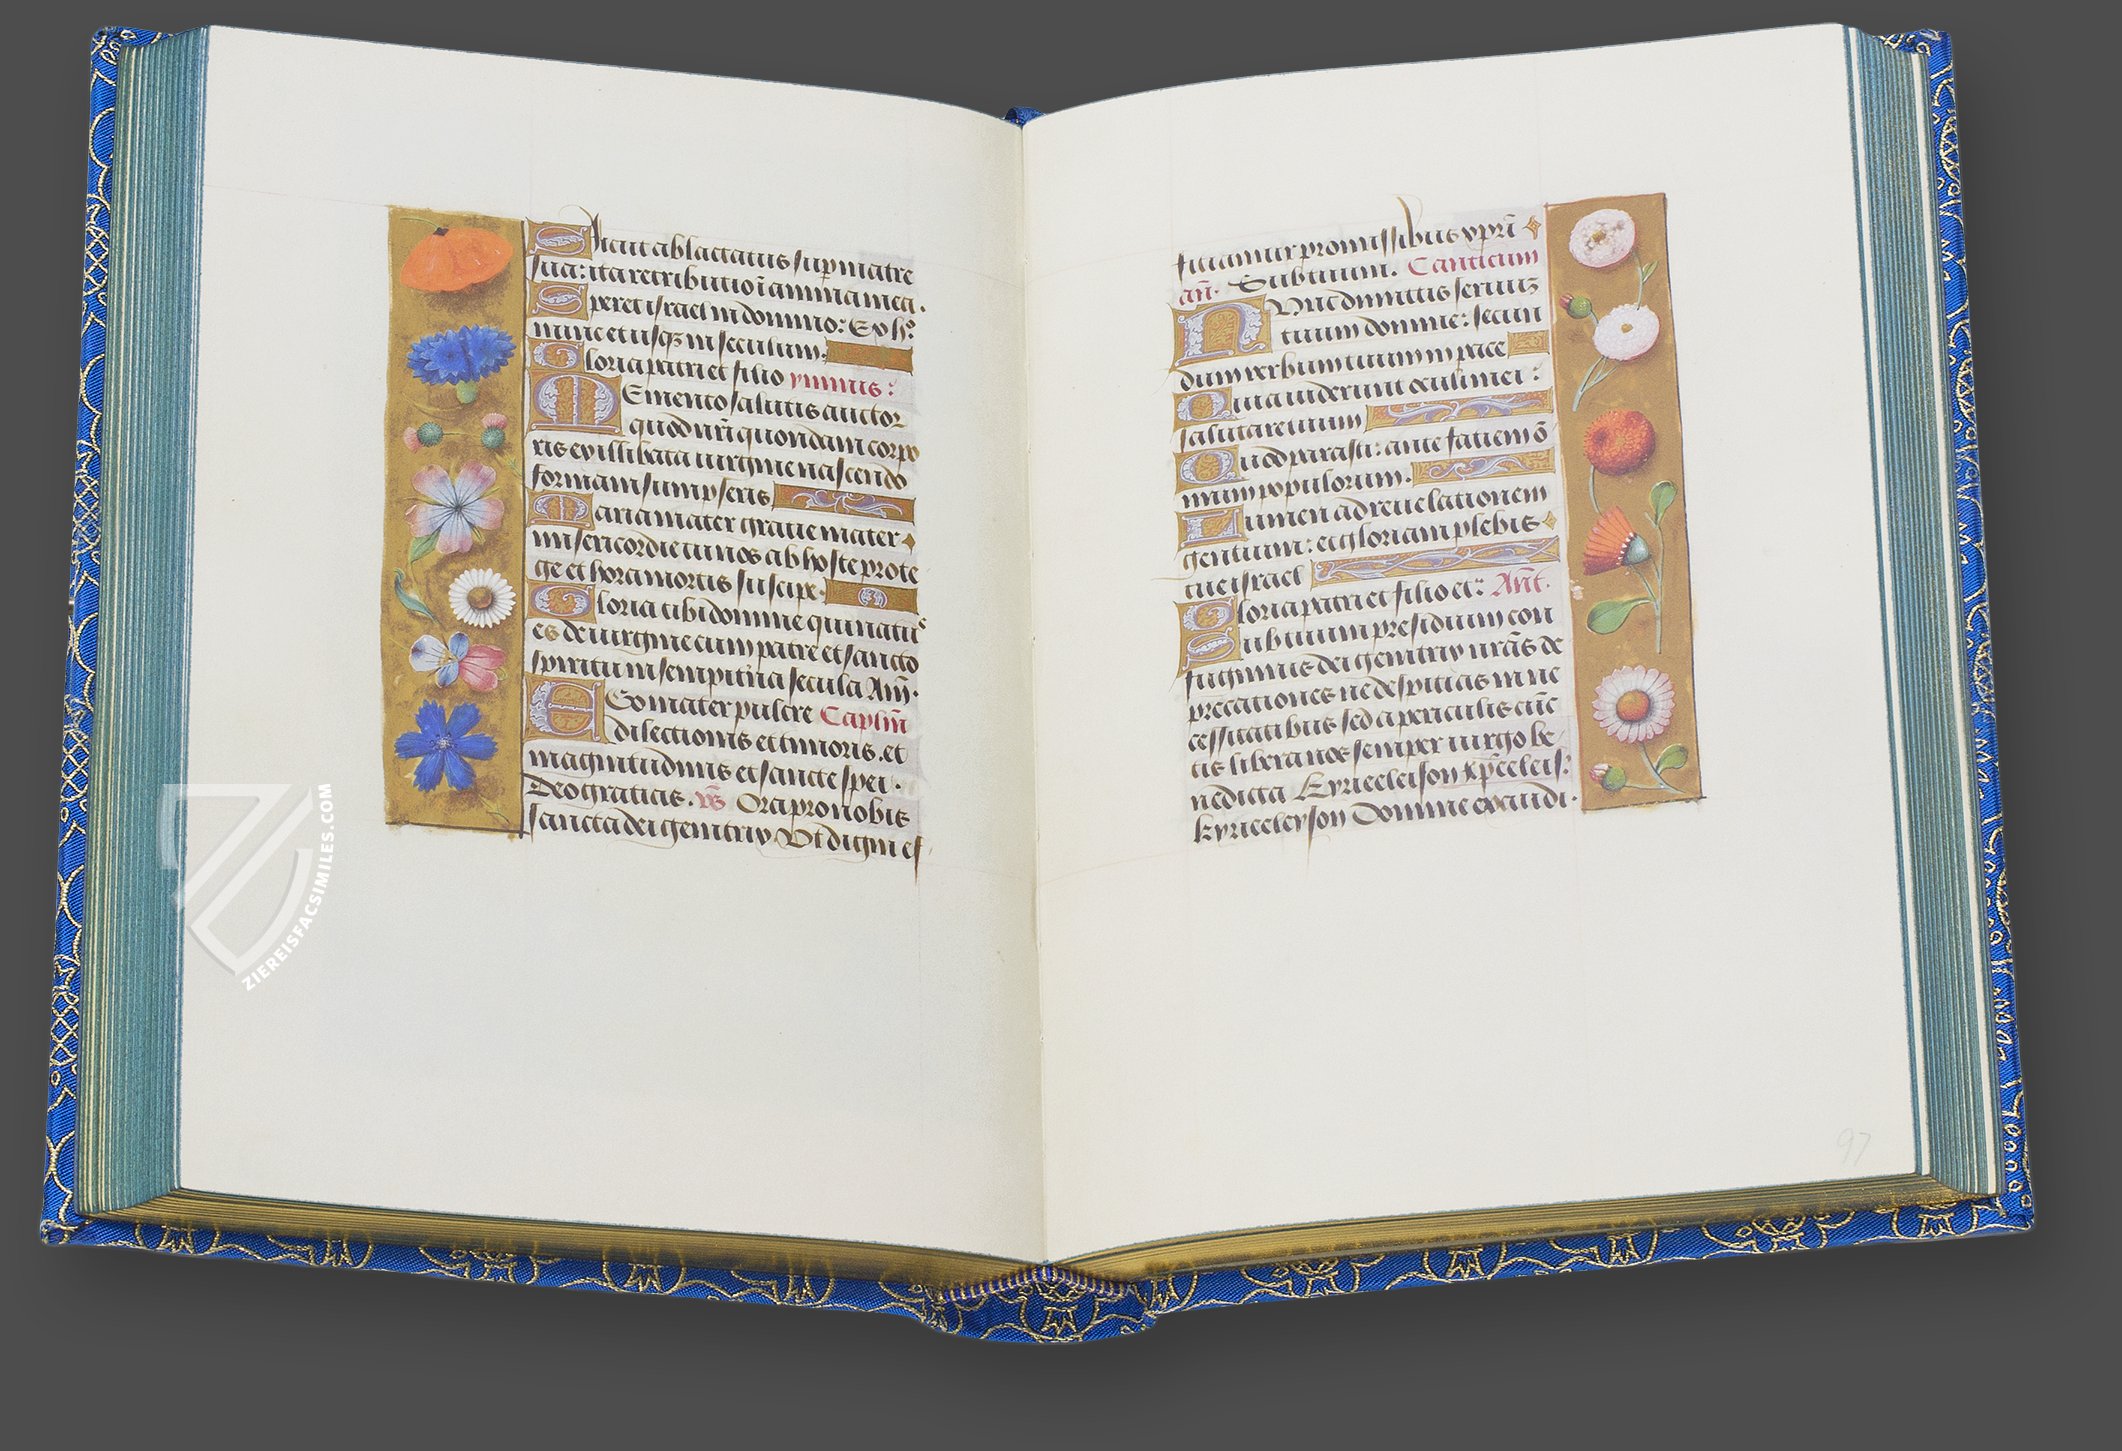 Sicut ablactatus sup matre
sua: ita retributio ī anima mea.
Speret israel in domino: Ex hͦ
nunc et usqꝫ in seculum.
Gloria patri et filio ymnus:
Memento salutis auctor
quod nr̄i quondam corpo
ris ex illibata uirgine nascendo
formam sumpseris
Maria mater gratie mater
misericordie tu nos ab hoste prote
ge et hora mortis suscipe.
Gloria tibi domine qui natus
es de uirgine cum patre et sancto
spiritu in sempit̄na secula Am̄.
Ego mater pulcre Capl̄m
dilectionis et timoris. et
magnitudinis et sancte spei.
Deo gratias. v̄s Ora pro nobis
sancta dei genitrix. Ut digni ef
ficiamur promissibus xpr̄i
an̄. Sub tuum. Canticum
Nunc dimittis seruū
tuum domine: secun
dum verbum tuum in pace
Quia uiderunt oculi mei:
salutare tuum
Quod parasti: ante faciem ō
mnium populorum.
Lumen ad reuelationem
gentium: et gloriam plebis
tue israel
Gloria patri et filio et: Ant.
Sub tuum presidium con
fugimus dei genitrix nr̄as de
precationes ne despicias in ne
cessitatibus sed a periculis cūc
tis libera nos semper uirgo be
nedicta Kyrieeleison xp̄eeleis:
kyrieeleyson Domine exaudi.
97
ZIEREISFACSIMILES.COM